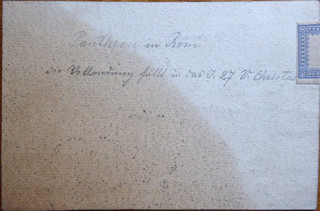 Pantheon in Rom
die Vollendung fällt in das J. 27 V. Christus